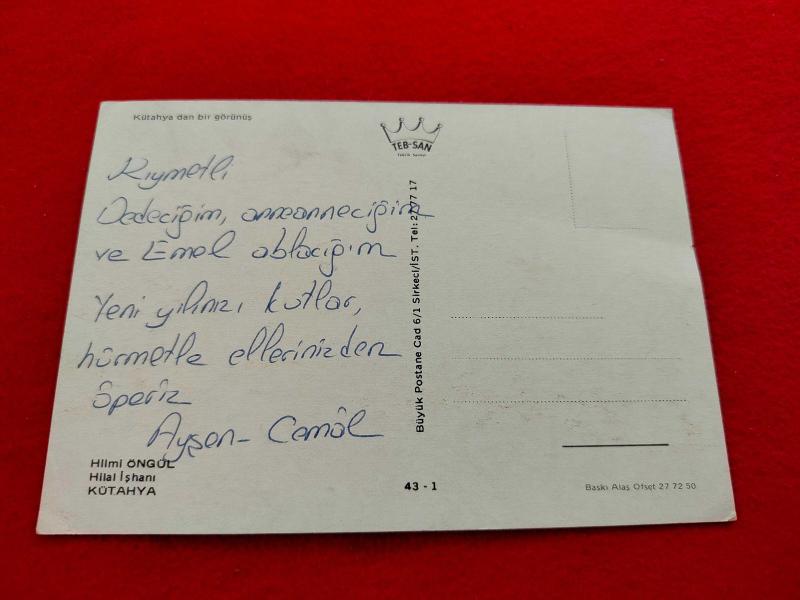 Kütahya dan bir görünüş
TEB-SAN
Tebrik Sanayi
Kıymetli
Dedeciğim, anneanneciğim
ve Emel ablacığım
Yeni yılınızı kutlar,
hürmetle ellerinizden
öperiz
Ayşen - Cemâl
Hilmi ÖNGÜL
Hilal İşhanı
KÜTAHYA
Büyük Postane Cad 6/1 Sirkeci/İST. Tel: 27 17
43 - 1
Baskı Alaş Ofset 27 72 50